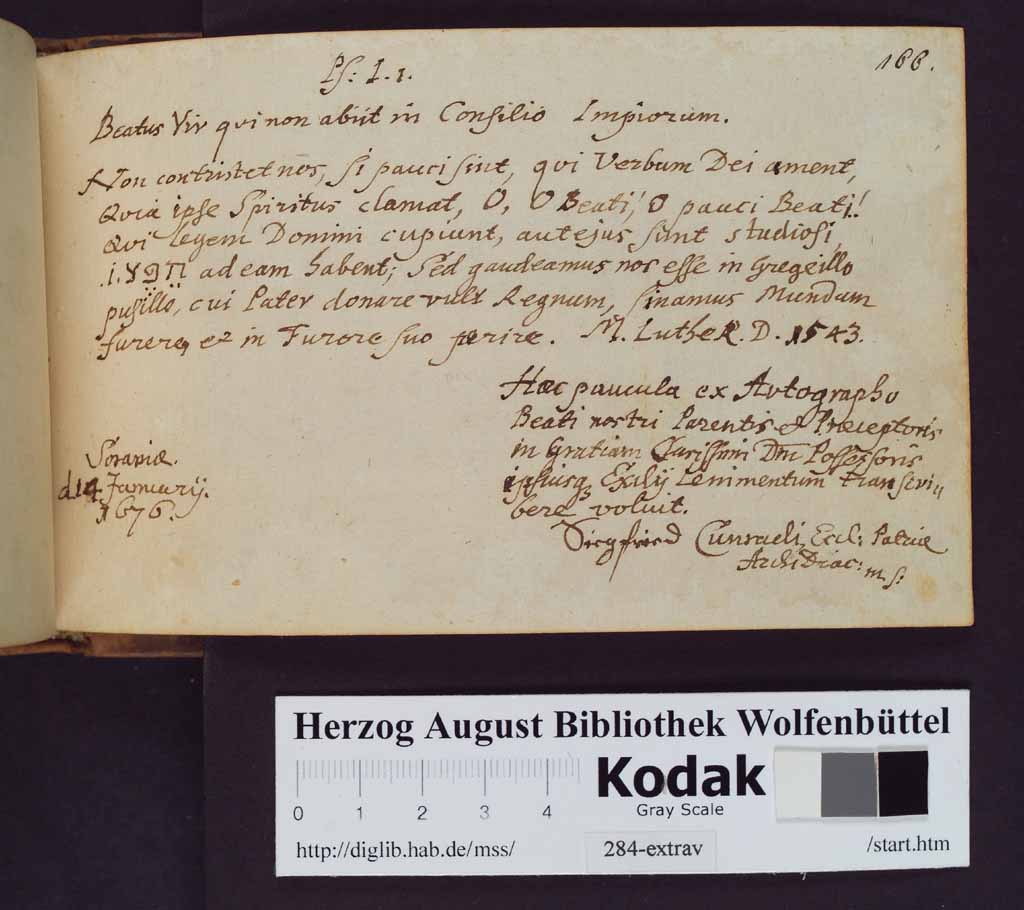 166.
Ps: I. 1.
Beatus Vir qvi non abiit in Consilio Impiorum.
Non contristet nos, si pauci sint, qvi Verbum Dei ament,
Qvia ipse Spiritus clamat, O, O Beati! O pauci Beati!
Qvi legem Domini cupiunt, aut ejus sunt studiosi,
ad eam habent; Sed gaudeamus nos esse in Gregillo
pusillo, cui Pater donare vult Regnum, sinamus Mundum
furere, et in Furore suo perire. M. LutheR. D. 1543.
Hæc paucula ex Avtographo
Beati nostri Parentis et Præceptoris
in Gratiam Clarissimi Dn Possessoris
ipsiusq Exilij Lenimentum transcri
bere voluit.
Siegfried Cunradi, Eccl: Patriæ
ArchiDiac: m s:
Soraviæ.
d 14 Januarij.
1676.
Herzog August Bibliothek Wolfenbüttel
Kodak
Gray Scale
0 1 2 3 4
http://diglib.hab.de/mss/ 284-extrav /start.htm